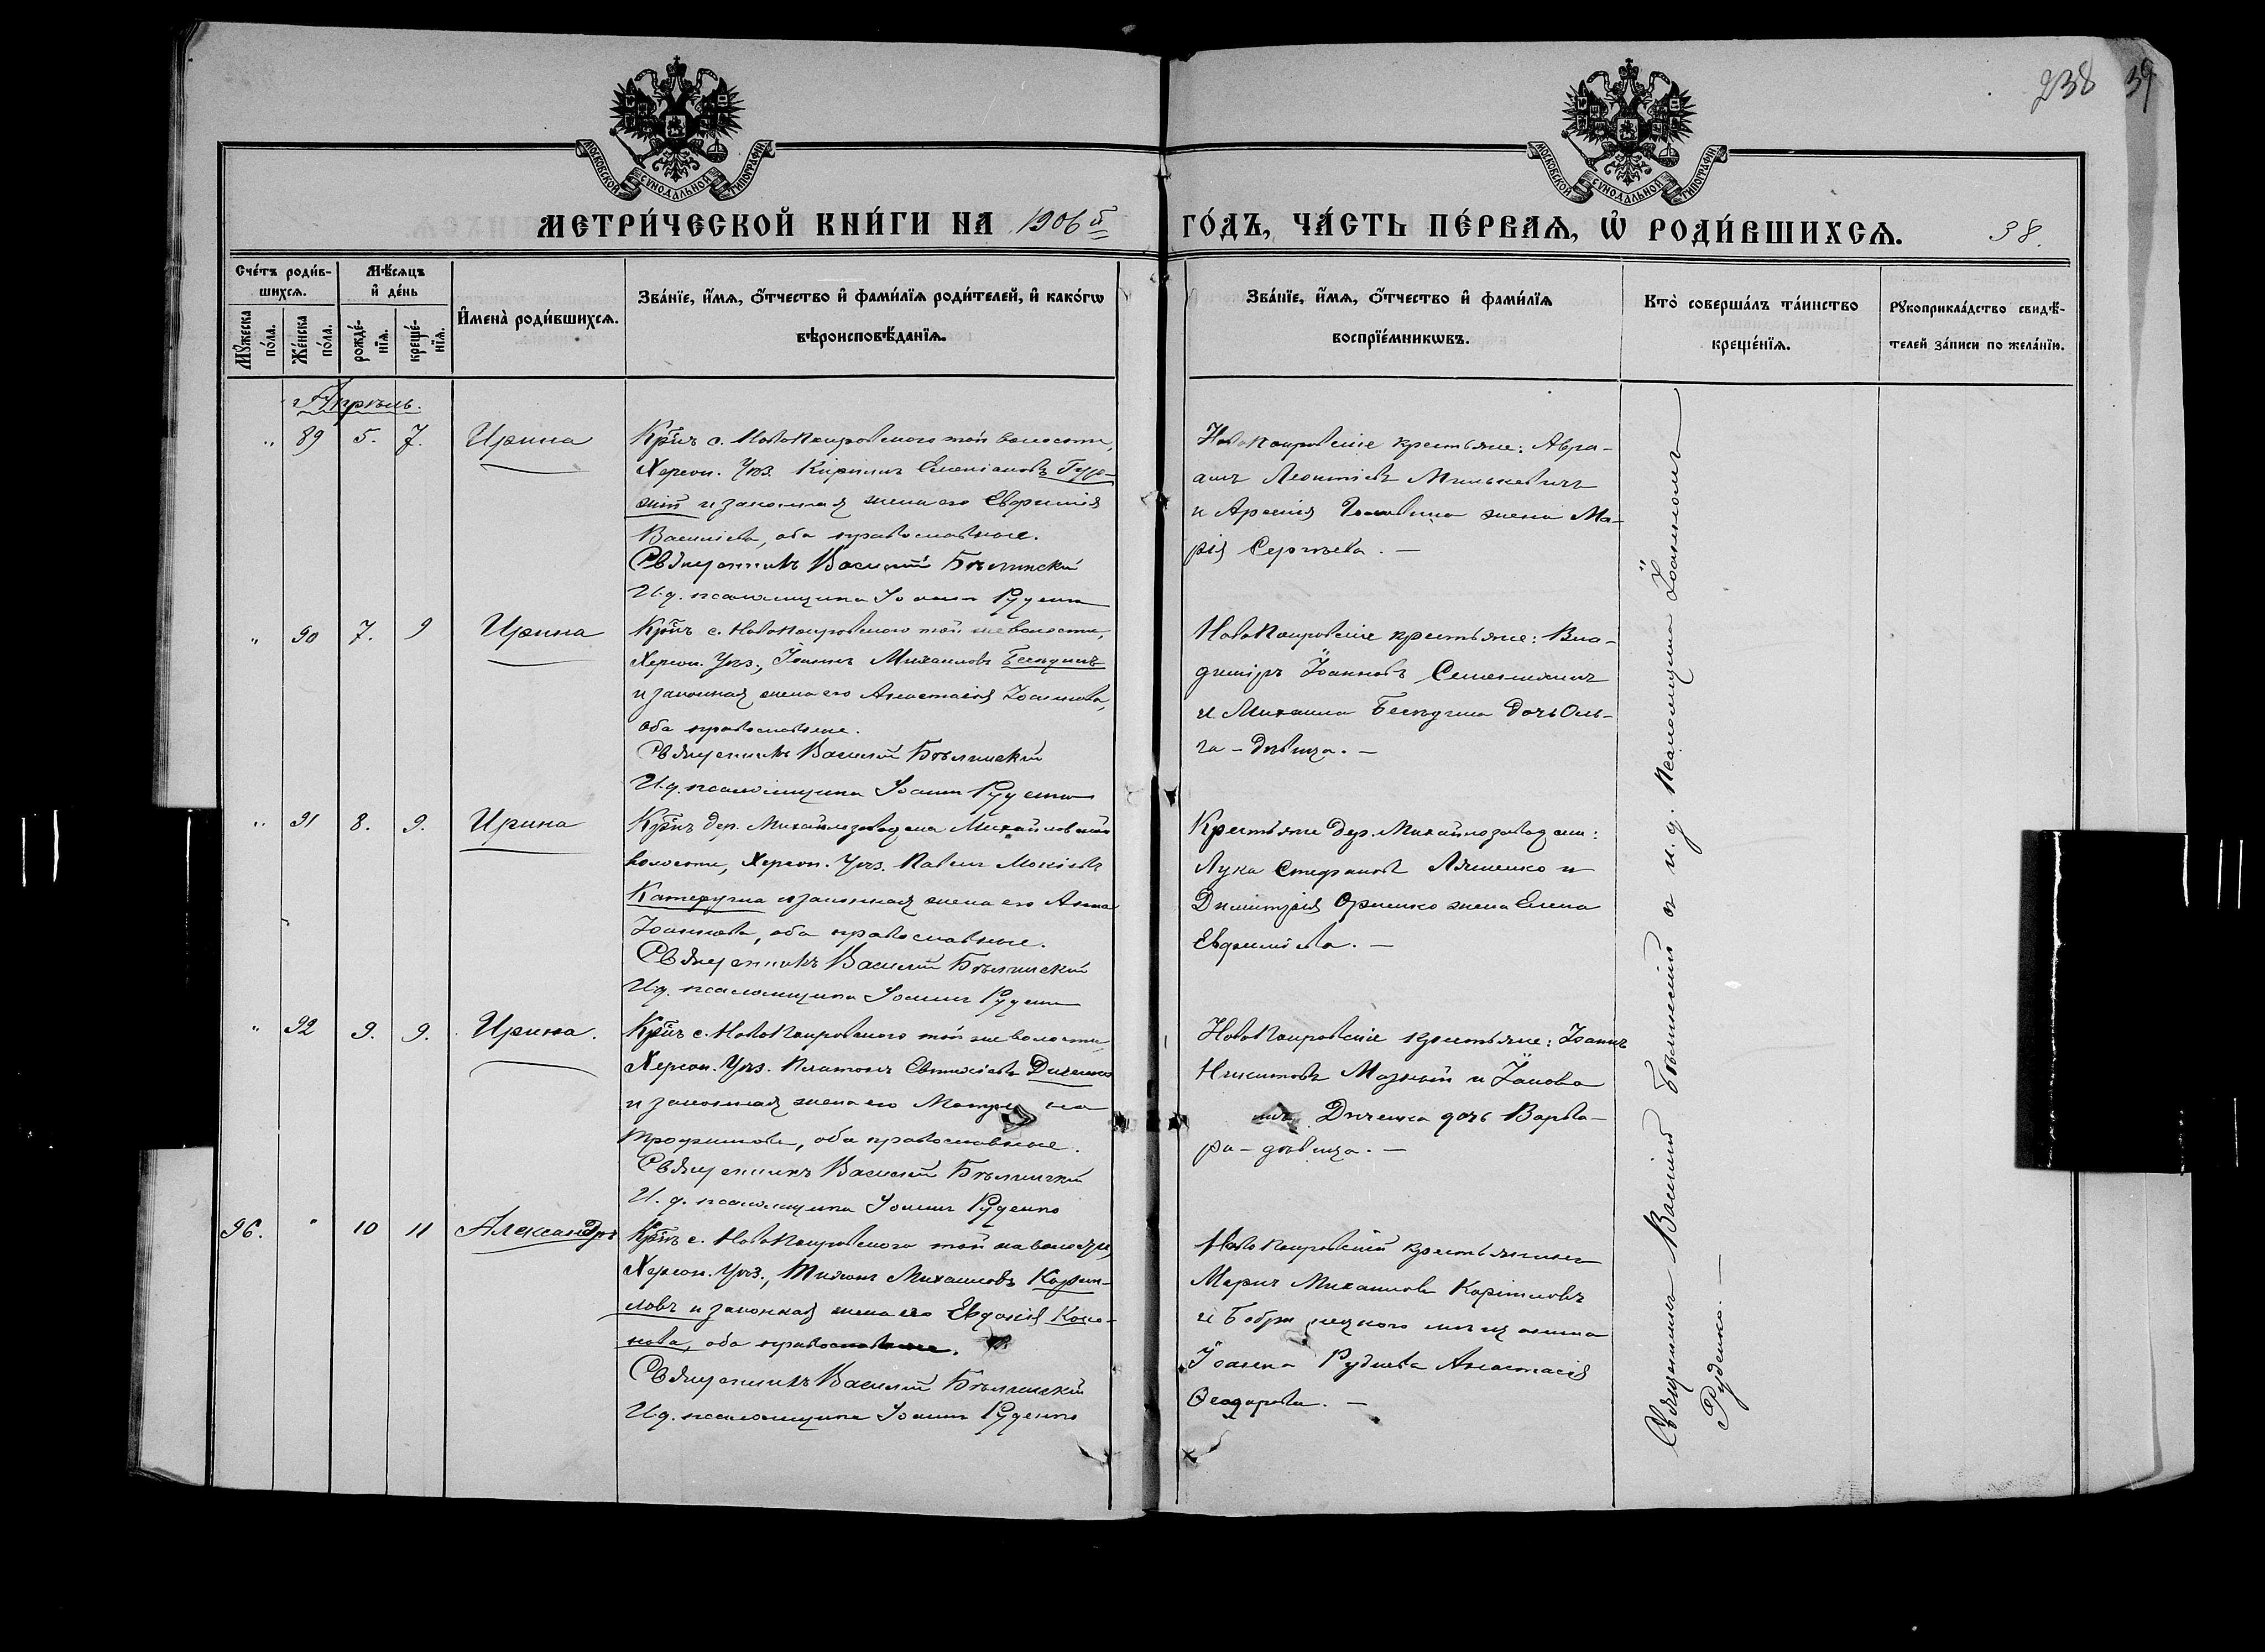 238 39
МОСКОВСКОЙ СѴНОДАЛЬНОЙ ТИПОГРАФІИ
МОСКОВСКОЙ СѴНОДАЛЬНОЙ ТИПОГРАФІИ
МЕТРИ́ЧЕСКОЙ КНИ́ГИ НА 1906 й ГО́ДЪ, ЧА́СТЬ ПЕ́РВАѦ, Ѡ РОДИ́ВШИХСѦ. 38.
Сче́тъ роди́в-
шихсѧ.
Мѣ́сѧцъ
и де́нь
Мꙋ́жеска по́ла.
Же́нска по́ла.
рожде́-нїѧ.
креще́-нїѧ.
Имена̀ роди́вшихсѧ.
Зва́нїе, и́мѧ, о́тчество и фами́лїѧ роди́телей, и како́гѡ
вѣроисповѣ́данїѧ.
Зва́нїе, и́мѧ, о́тчество и фами́лїѧ
воспрїе́мникѡвъ.
Кто̀ соверша́лъ та́инство
креще́нїѧ.
Рꙋкоприкла́дство свидѣ́-
телей за́писи по жела́нїю.
Апрѣль.
" 89 5. 7. Ирина
Кр̃нъ с. НовоПокровского той волости,
Херсон. Уѣз. Кириллъ Емеліановъ
и законная жена его Евфимія
Василіева, оба православные.
Священникъ Василій Бѣлинскій
И.д. псаломщика Іоаннъ Руденко
НовоПокровскіе крестьяне: Авра-
амъ Леонтіевъ Милькевичъ
и Арсенія жена Ма-
рія Сергѣева. —
" 90 7. 9 Ирина
Кр̃нъ с. НовоПокровского той же волости,
Херсон. Уѣз., Іоаннъ Михаиловъ
и законная жена его Анастасія Іоаннова,
оба православные.
Священникъ Василій Бѣлинскій
И.д. псаломщика Іоаннъ Руденко
НовоПокровскіе крестьяне: Вла-
диміръ Іоанновъ
и Михаила дочь Оль-
га - дѣвица. —
" 91 8. 9. Ирина
Кр̃нъ дер. Михайлозаводска Михайловской
волости, Херсон. Уѣз. Павелъ Мокіевъ
Катеруша и законная жена его Анна
Іоаннова, оба православные.
Священникъ Василій Бѣлинскій
И.д. псаломщика Іоаннъ Руденко
Крестьяне дер.
Лука Стефановъ Ляшенко и
Димитрія жена Елена
Евфиміева. —
" 92 9. 9. Ирина.
Кр̃нъ с. НовоПокровского той же волости
Херсон. Уѣз. Платонъ Евтихіевъ
и законная жена его Матрона
Трофимова, оба православные.
Священникъ Василій Бѣлинскій
И.д. псаломщика Іоаннъ Руденко
НовоПокровскіе крестьяне: Іоаннъ
Никитовъ Мазный и Іакова
дочь Варва-
ра - дѣвица. —
96. " 10 11 Александръ
Кр̃нъ с. НовоПокровского той же волости,
Херсон. Уѣз., Тихонъ Михаиловъ Кори-
ловъ и законная жена его Евдокія Коно-
нова, оба православные.
Священникъ Василій Бѣлинскій
И.д. псаломщика Іоаннъ Руденко
НовоПокровскій крестьянинъ
Михаиловъ
и Бобринецкого мѣщанина
Іоанна Руднева Анастасія
Ѳеодорова. —
Священникъ Василій Бѣлинскій съ и. д. псаломщика Іоанномъ
Руденко. —